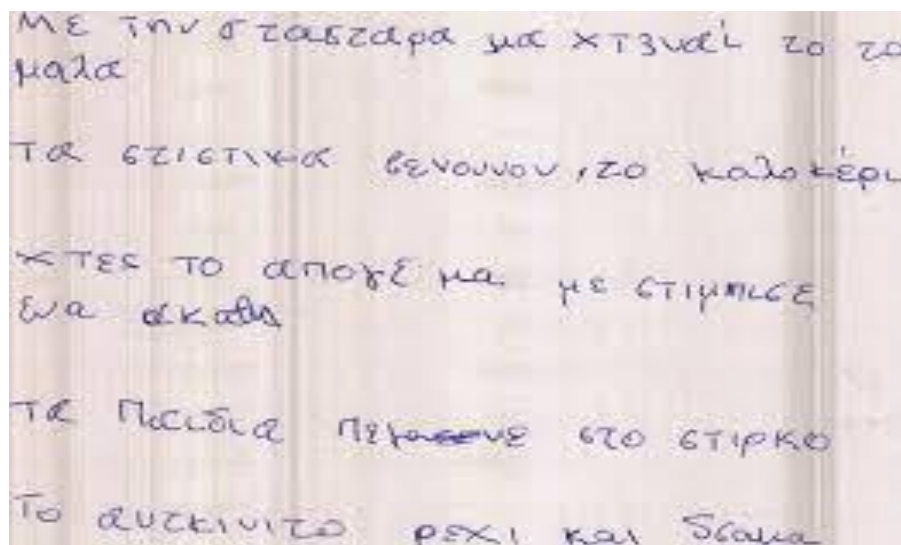 Με την σταςταρα μα χτενάι το το
μαλα
Τα στιστικα βενουνον, το καλοκέρι
χτες το απογέμα με στιμπισε
ενα ακαθι
τα Παιδια στο στιρκο
Το αυτκινιτο ρεχι και